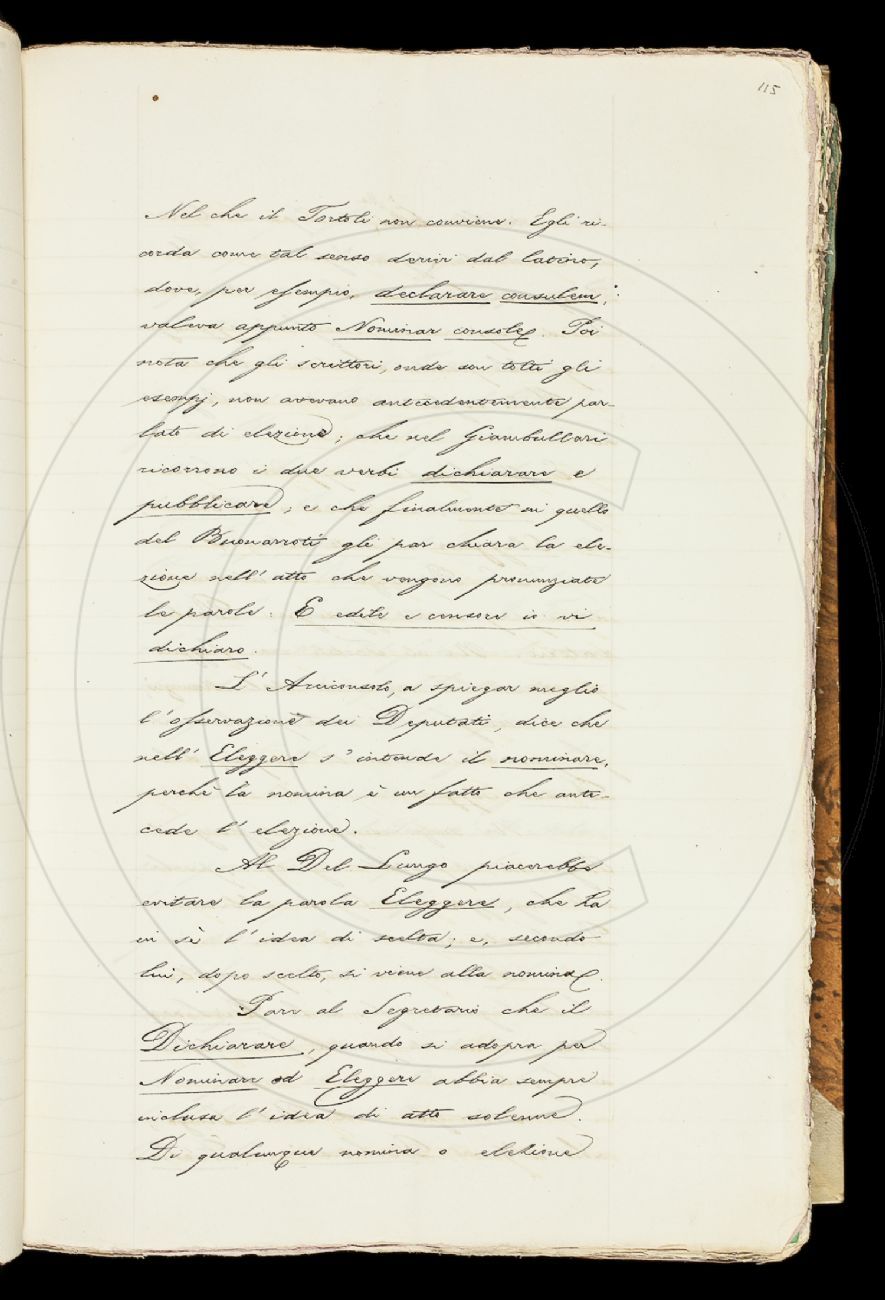 115
Nel che il Tortoli non conviene. Egli ri-
corda come tal senso derivi dal latino,
dove, per esempio, declarare consulem,
valeva appunto Nominar console. Poi
nota che gli scrittori, onde son tolti gli
esempj, non avevano antecedentemente par-
lato di elezione; che nel Giambullari
ricorrono i due verbi dichiarare e
pubblicare; e che finalmente in quello
del Buonarroti gli par chiara la ele-
zione nell' atto che vengono pronunziate
le parole: E edile e censore io vi
dichiaro.
L' Arciconsolo, a spiegar meglio
l' osservazione dei Deputati, dice che
nell' Eleggere s' intende il nominare,
perchè la nomina è un fatto che ante-
cede l' elezione.
Al Del Lungo piacerebbe
evitare la parola Eleggere, che ha
in sè l' idea di scelta; e, secondo
lui, dopo scelto, si viene alla nomina.
Pare al Segretario che il
Dichiarare, quando si adopra per
Nominare od Eleggere abbia sempre
inclusa l' idea di atto solenne.
Di qualunque nomina o elezione